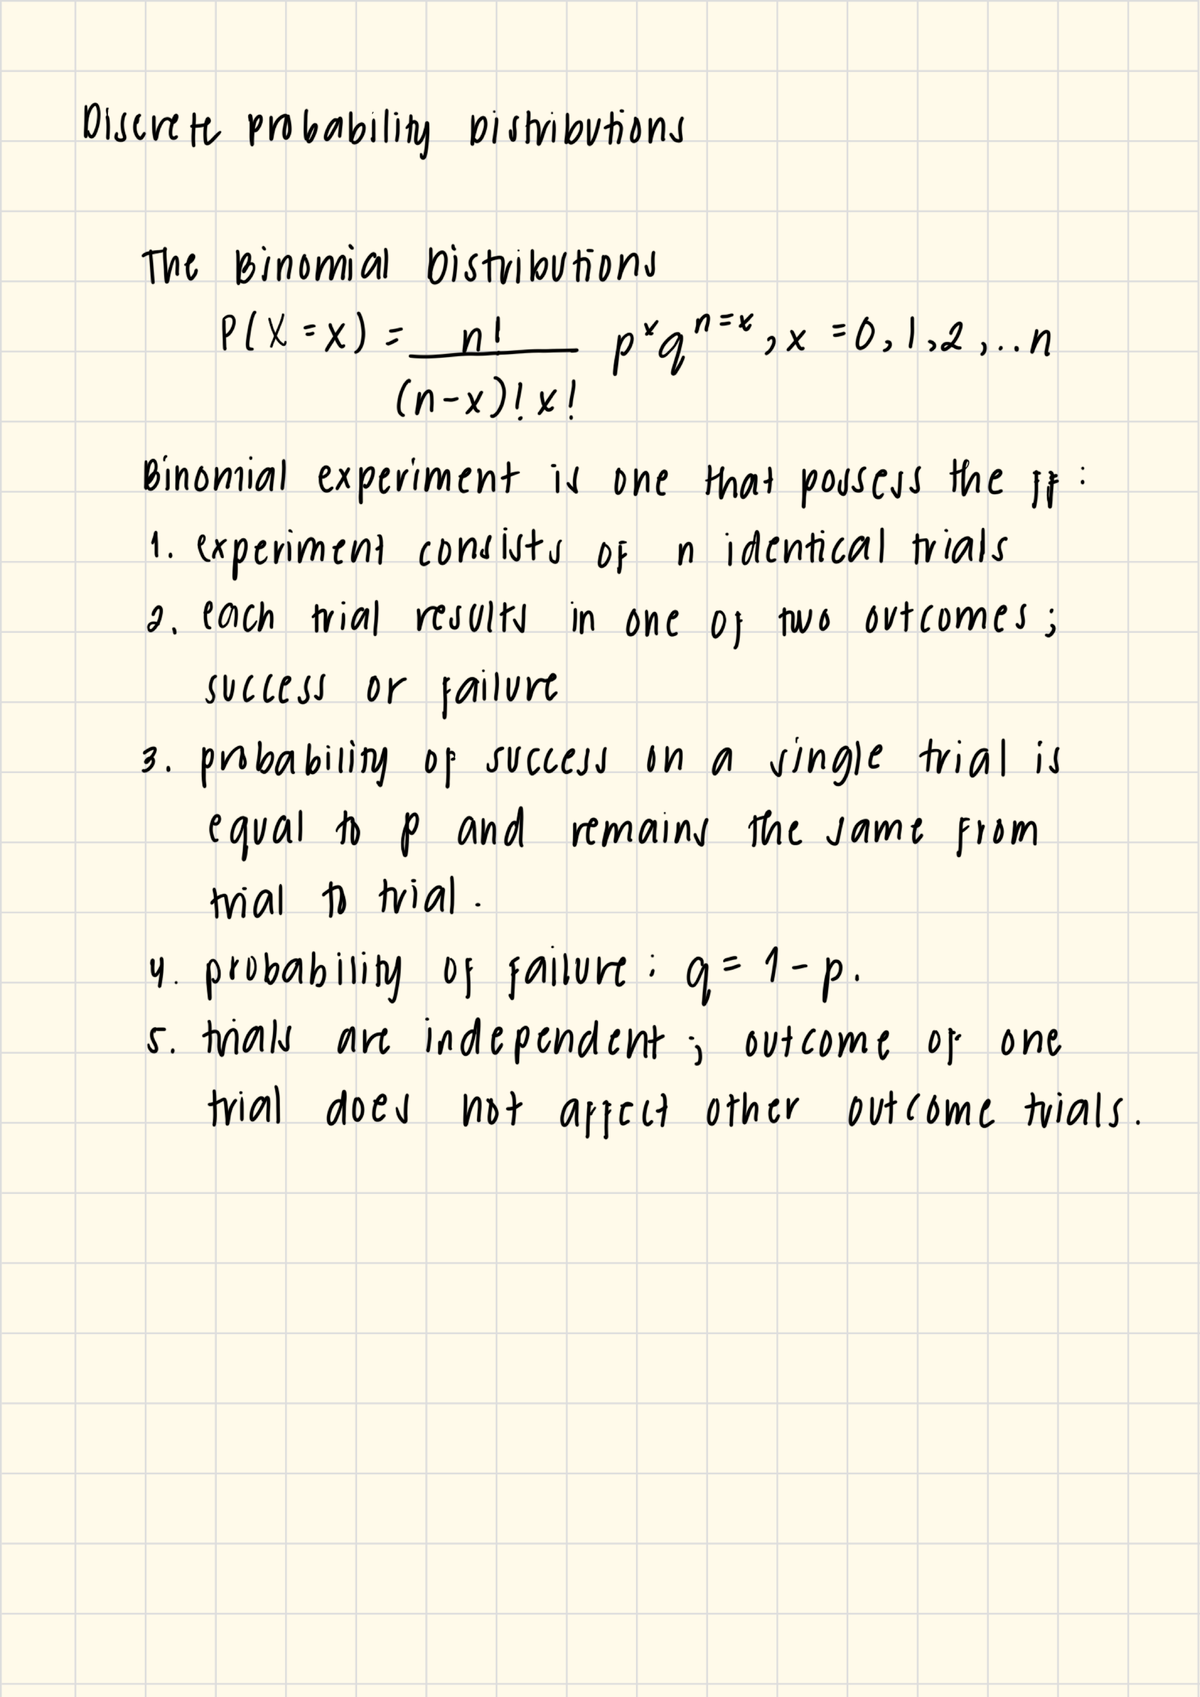 Discrete probability Distributions
The Binomial Distributions
P(X = x) = n! / (n-x)! x! p^x q^(n=x), x = 0, 1, 2, .. n
Binomial experiment is one that possess the ff:
1. experiment consists of n identical trials
2. each trial results in one of two outcomes;
success or failure
3. probability of success on a single trial is
equal to p and remains the same from
trial to trial.
4. probability of failure: q = 1 - p.
5. trials are independent; outcome of one
trial does not affect other outcome trials.